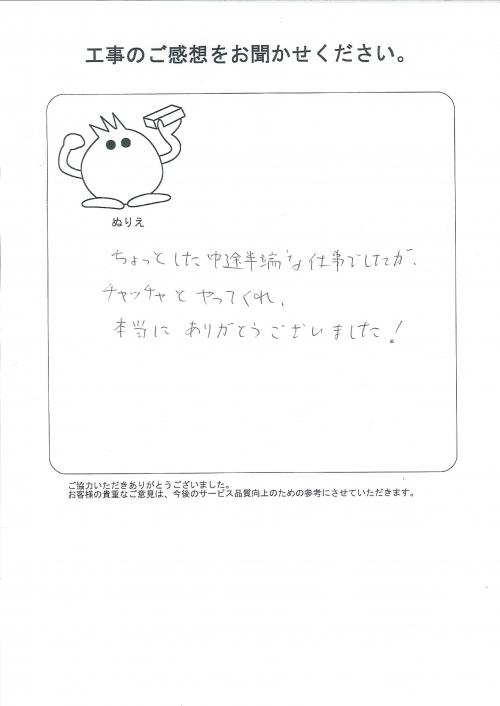 工事のご感想をお聞かせください。
ぬりえ
ちょっとした中途半端な仕事でしたが、
チャッチャとやってくれ、
本当にありがとうございました!
ご協力いただきありがとうございました。
お客様の貴重なご意見は、今後のサービス品質向上のための参考にさせていただきます。